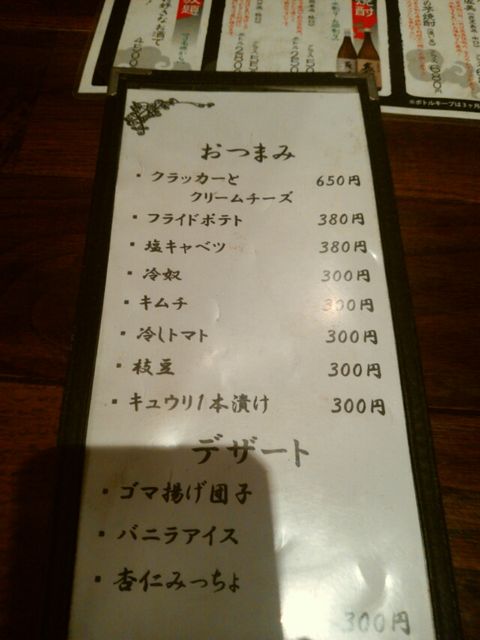 おつまみ
・クラッカーと 650円
クリームチーズ
・フライドポテト 380円
・塩キャベツ 380円
・冷奴 300円
・キムチ 300円
・冷しトマト 300円
・枝豆 300円
・キュウリ1本漬け 300円
デザート
・ゴマ揚げ団子
・バニラアイス
・杏仁みっちょ
300円
焼酎
※ボトルキープは3ヶ月